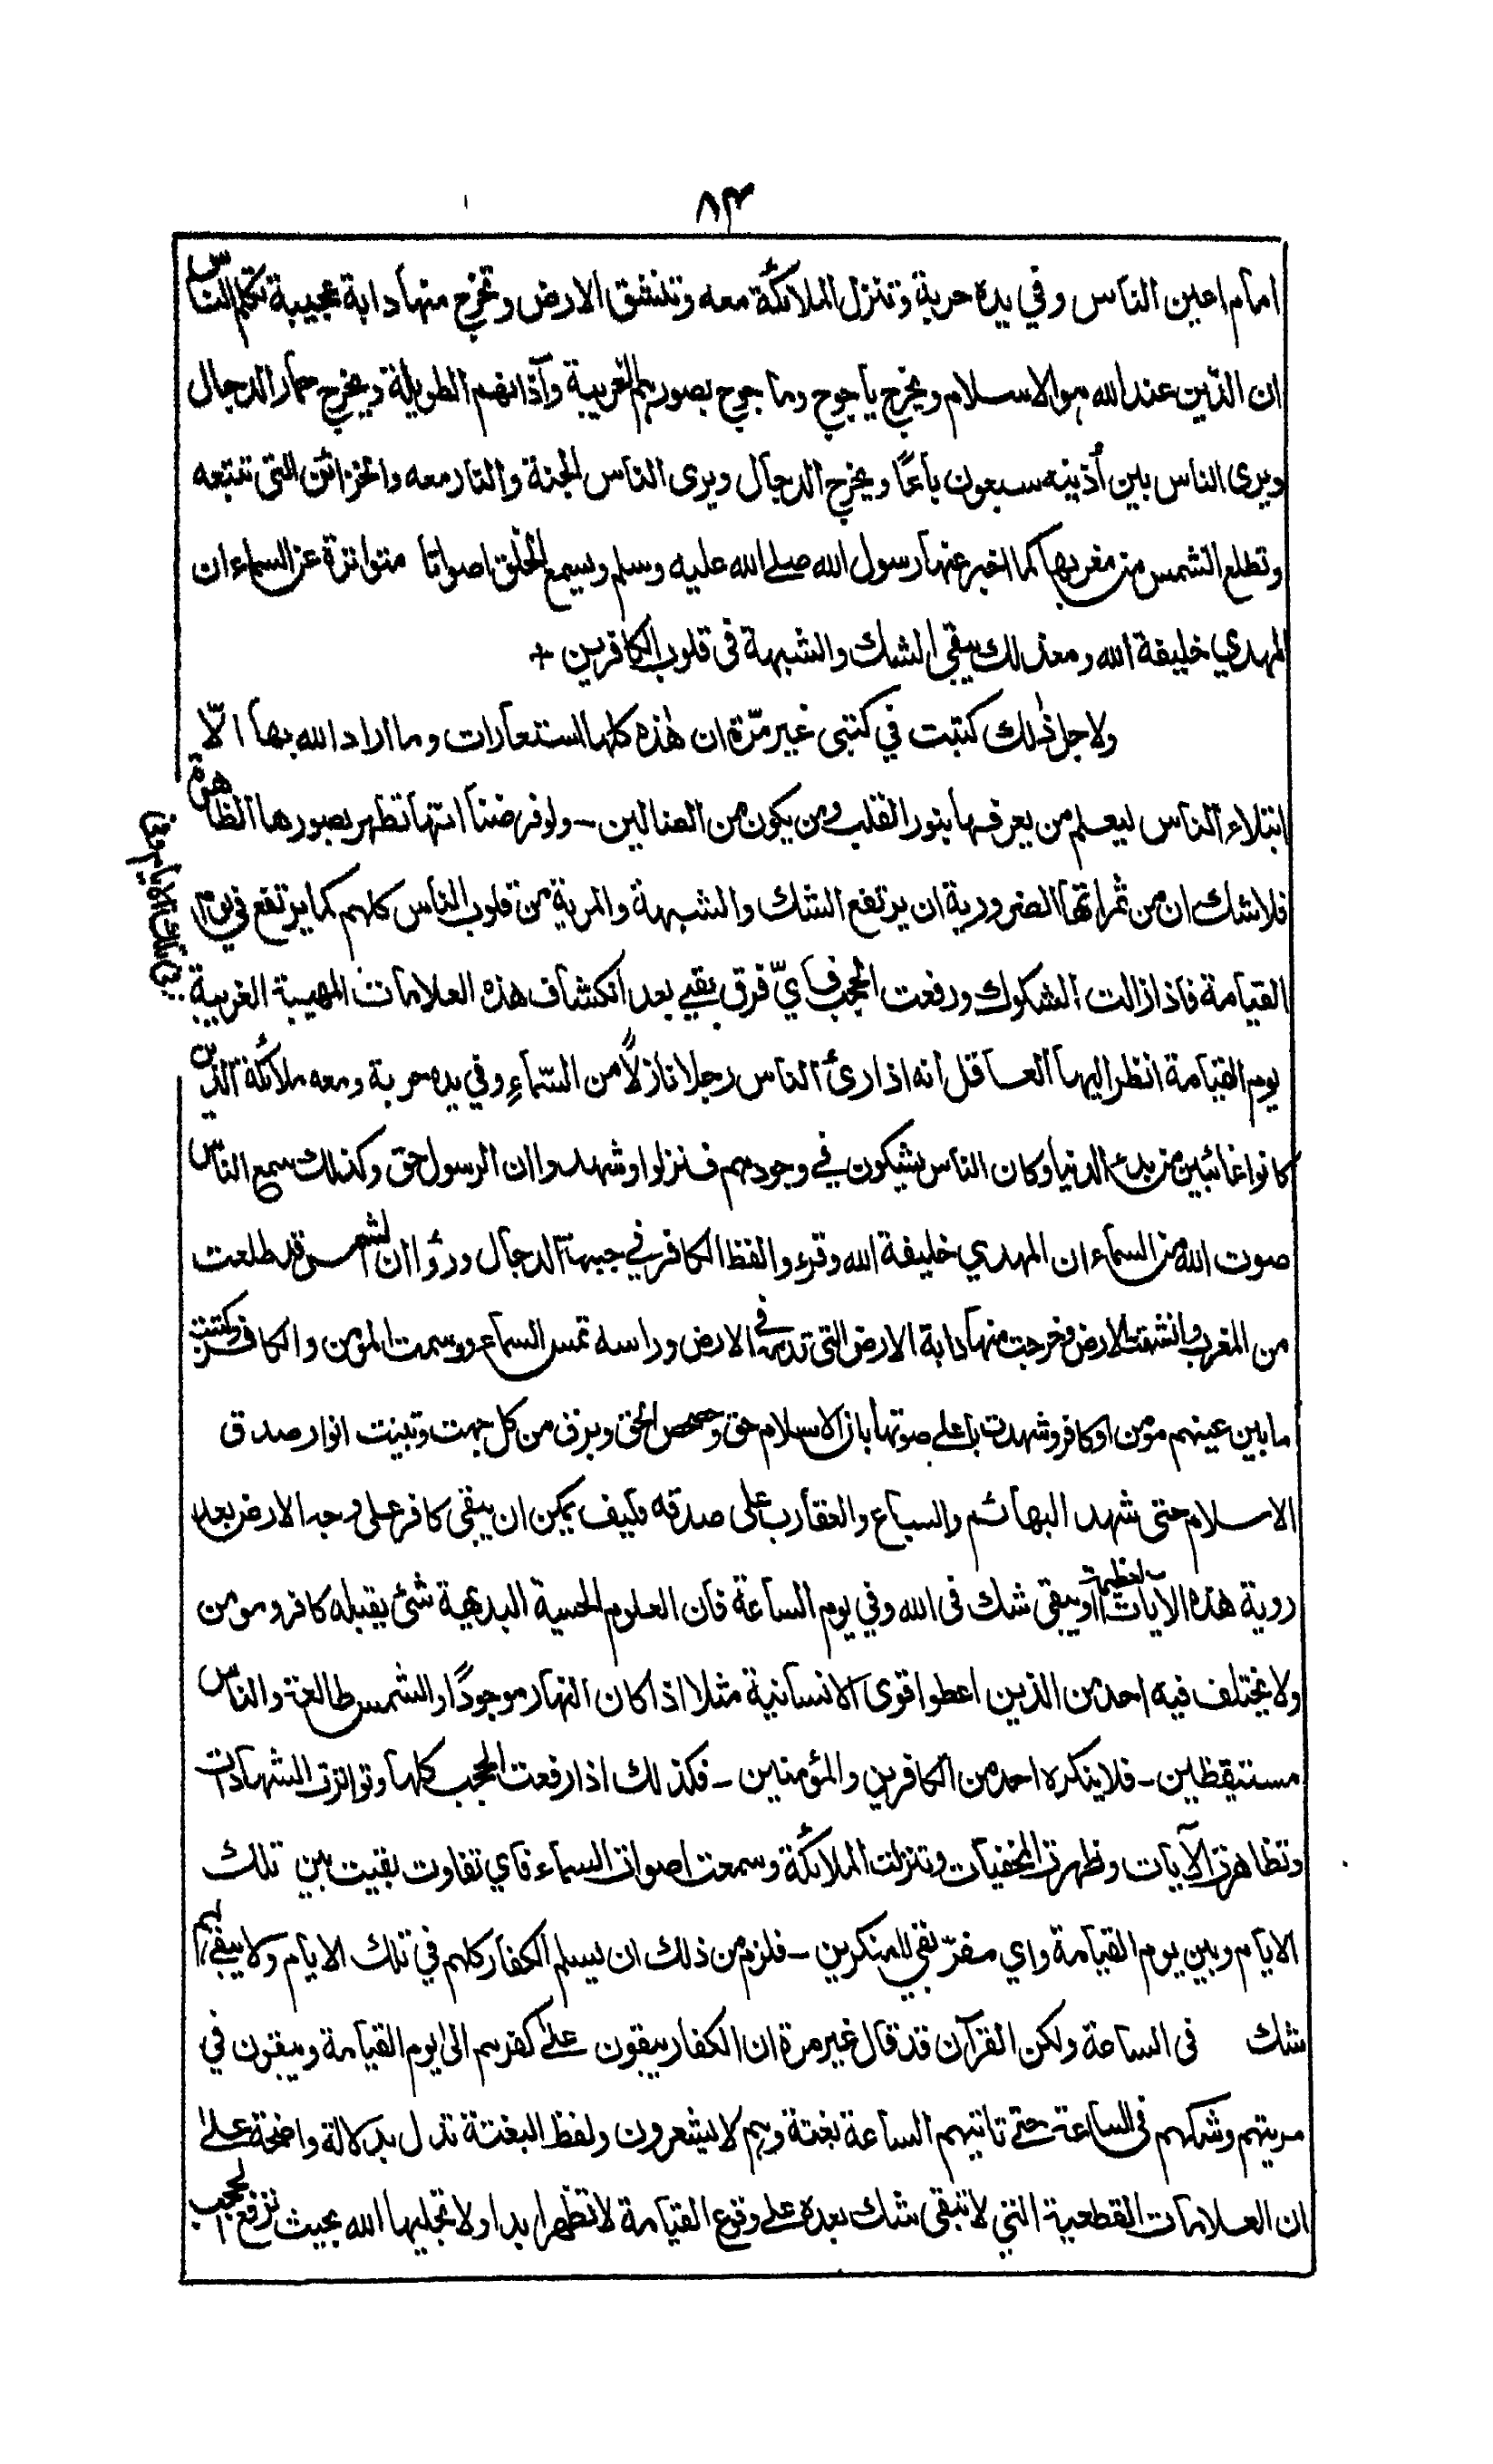 ۸۴
امام اعين الناس وفي يده حربة وتنزل الملائكة معه وتنشق الارض وتخرج منها دابة عجيبة تكلم الناس
ان الدّين عند الله هو الاسلام ويخرج ياجوج وماجوج بصورهم الغريبة وآذانهم الطويلة ويخرج حمار الدجال
ويرى الناس بين أذنيه سبعون باعًا ويخرج الدجال ويرى الناس الجنة والنار معه والخزائن التى تتبعه
وتطلع الشمس من مغربها كما اخبر عنها رسول الله صلے الله عليه وسلم ويسمع الخلق اصواتا متواترة عن السماء ان
المهدي خليفة الله ومعذلك يبقى الشك والشبهة فى قلوب الكافرين +
ولاجل ذٰلك كتبت في كتبى غير مرّة ان هٰذه كلها استعارات وما اراد الله بها الّا
ابتلاء الناس ليعلم من يعرفها بنور القلب ومن يكون من الضالين - ولو فرضنا انها تظهر بصورها الظاهرة
فلا شك ان من ثمراتها الضرورية ان يرتفع الشك والشبهة والمرية من قلوب الناس كلهم كما يرتفع في يوم
القيامة فاذا زالت الشكوك ورفعت الحجب فايّ فرق بقي بعد انكشاف هذه العلامات المهيبة الغريبة
بين تلك الايام وبين
يوم القيامة انظر ايها العاقل انه اذا رئ الناس رجلا نازلًا من السّماءِ وفي يده حربة ومعه ملائكة الذين
كانوا غائبين من بدء الدنيا وكان الناس يشكون في وجودهم فنزلوا وشهدوا ان الرسول حق وكذلك سمع الناس
صوت الله من السماء ان المهدي خليفة الله وقرءوا لفظ الكافر في جبهة الدجال ورؤا ان الشمس قد طلعت
من المغرب وانشقت الارض وخرجت منها دابة الارض التى قدمه في الارض وراسه تمس السماء ووسمت المؤمن والكافر وكتبت
ما بين عينهم مؤمن او كافر وشهدت باعلے صوتها بان الاسلام حق وحصحص الحق وبرق من كل جهت وتبينت انوار صدق
الاسلام حتى شهد البهائم والسباع والعقارب على صدقه فكيف يمكن ان يبقى كافر على وجه الارض بعد
روية هذه الايات العظيمة او يبقى شك فى الله وفي يوم الساعة فان العلوم الحسية البديهية شئ يقبله كافر ومومن
ولا يختلف فيه احد من الذين اعطوا قوى الانسانية مثلا اذا كان النهار موجودًا والشمس طالعة والناس
مستيقظين - فلا ينكره احد من الكافرين والمؤمنين - فكذلك اذا رفعت الحجب كلها وتواترت الشهادات
وتظاهرت الآيات وظهرت المخفيات وتنزلت الملائكة وسمعت اصوات السماء فاي تفاوت بقيت بين تلك
الايام وبين يوم القيامة واي مفرّ بقي للمنكرين - فلزم من ذلك ان يسلم الكفار كلهم في تلك الايام ولا يبقى لهم
شك فى الساعة ولكن القرآن قد قال غير مرة ان الكفار يبقون علے كفرهم الى يوم القيامة ويبقون في
مريتهم وشكهم فى الساعة حتے تاتيهم الساعة بغتة وهم لا يشعرون ولفظ البغتة تدل بدلالة واضحة علے
ان العلامات القطعية التي لا تبقى شك بعده علے وقوع القيامة لا تظهر ابدا ولا تجليها الله بحيث ترفع الحجب